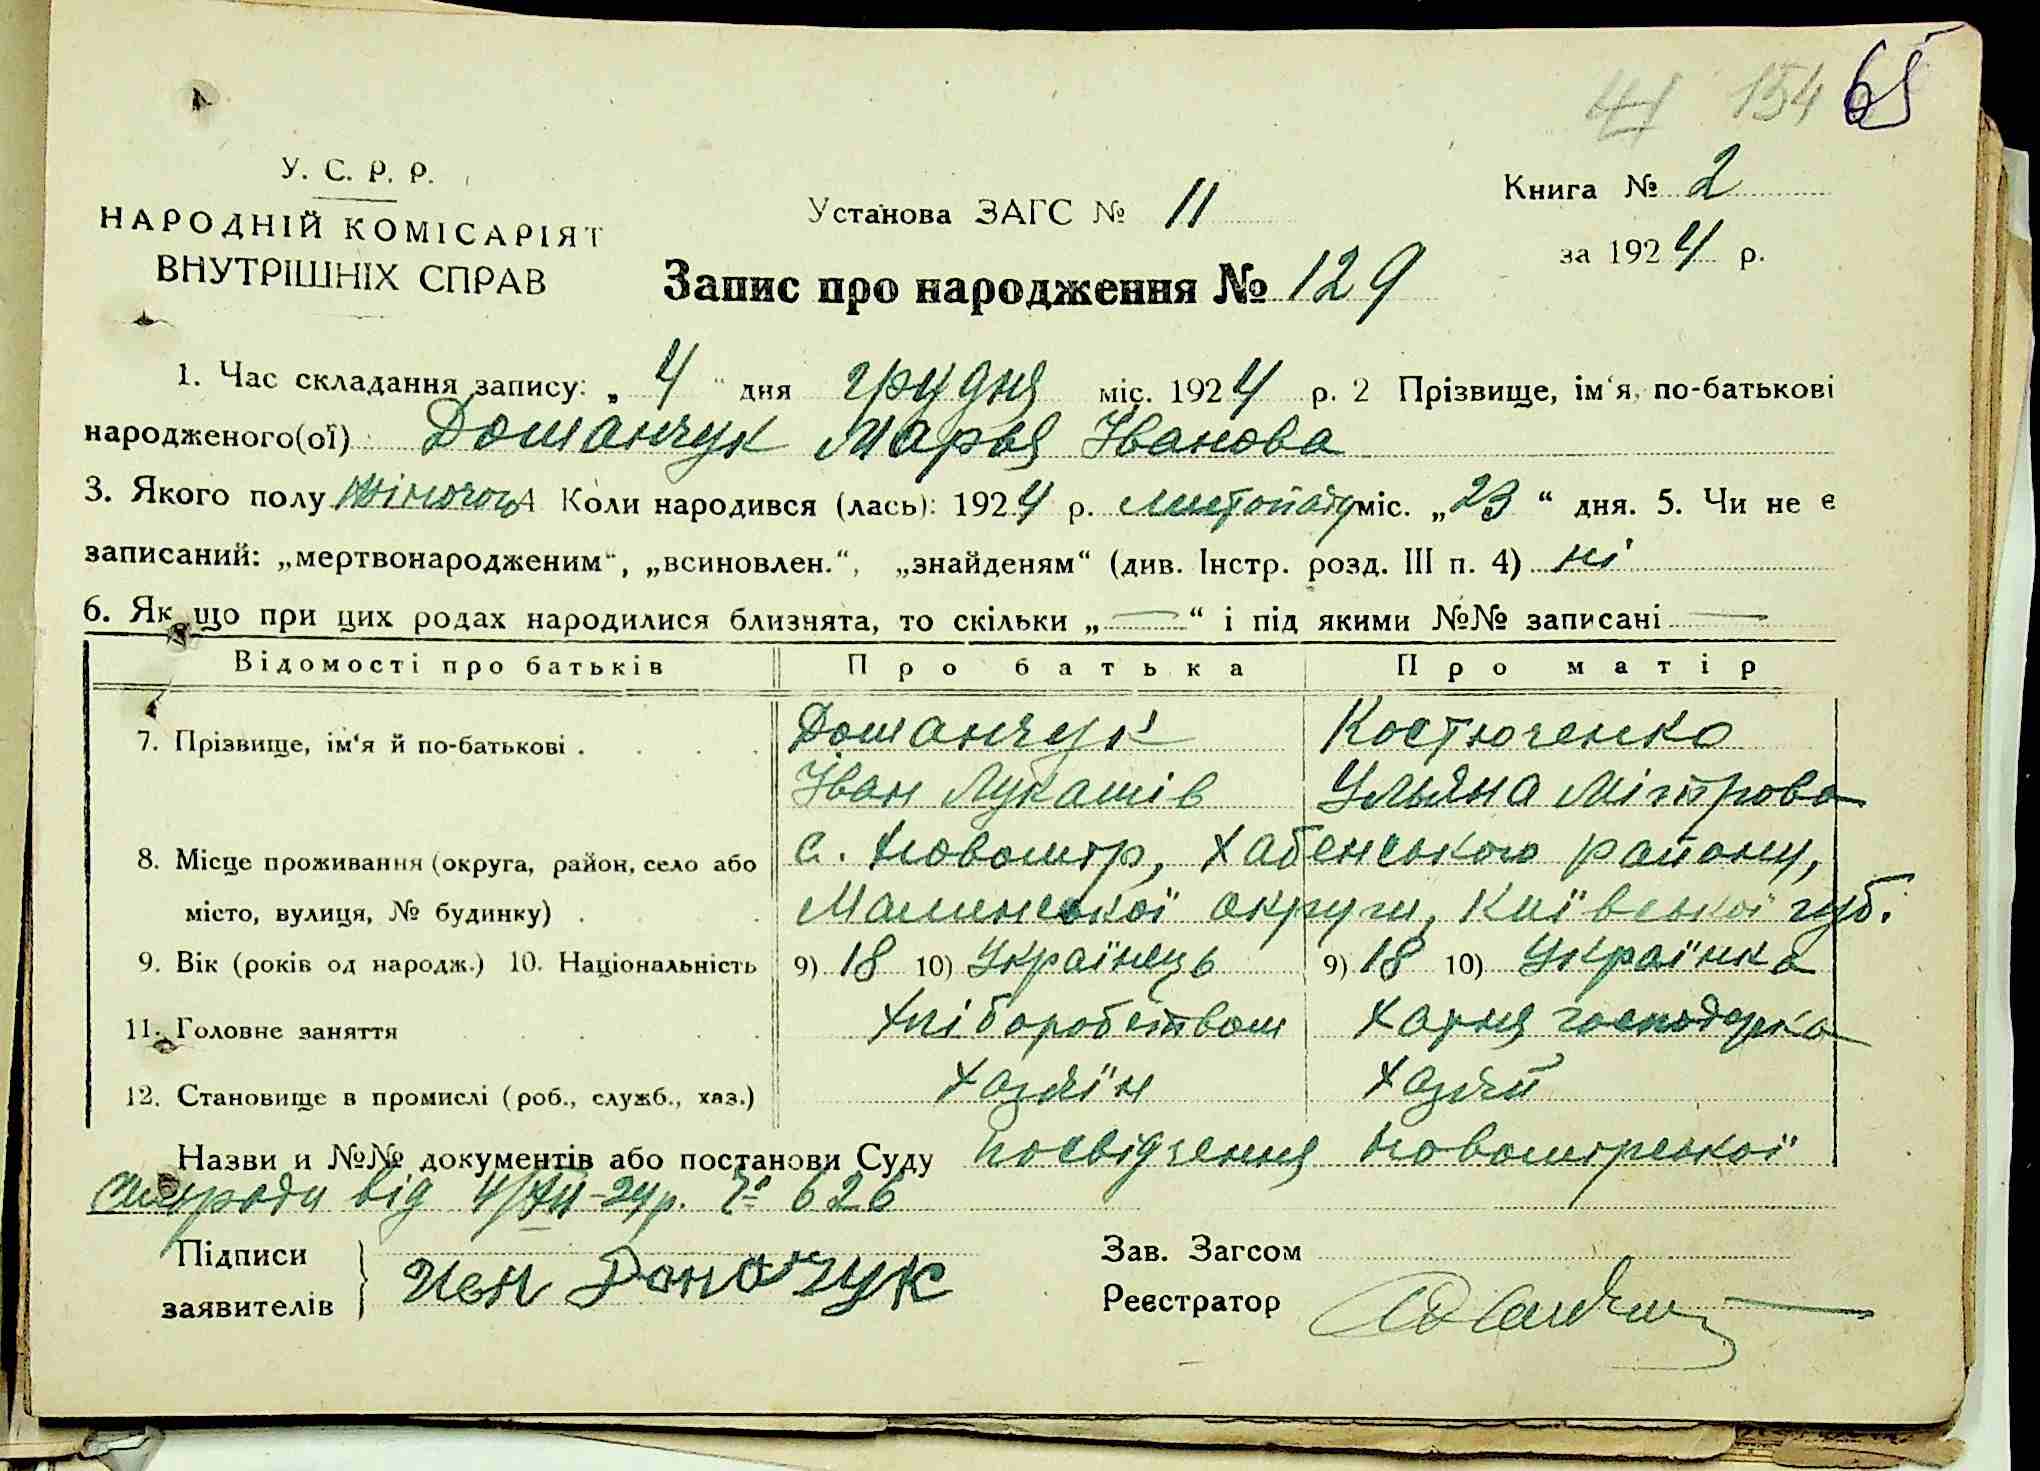 41 154 65
У. С. Р. Р.
НАРОДНІЙ КОМІСАРІЯТ
ВНУТРІШНІХ СПРАВ
Установа ЗАГС № 11
Книга № 2
за 1924 р.
Запис про народження № 129
1. Час складання запису: „ 4 " дня грудня міс. 1924 р. 2 Прізвище, ім'я, по-батькові
народженого(ої) Доманчук Марья Іванова
3. Якого полу жіночого 4 Коли народився (лась): 1924 р. листопаду міс. „23“ дня. 5. Чи не є
записаний: „мертвонародженим“, „всиновлен.“, „знайденям“ (див. Інстр. розд. III п. 4) ні
6. Як що при цих родах народилися близнята, то скільки „—“ і під якими №№ записані —
Відомості про батьків Про батька Про матір
7. Прізвище, ім'я й по-батькові . Доманчук Костюченко
Іван Лукашів Ульяна Мітрова
8. Місце проживання (округа, район, село або с. Новомир, Хабенського району,
місто, вулиця, № будинку) . Малинської округи, Київської губ.
9. Вік (років од народж.) 10. Національність 9) 18 10) Українець 9) 18 10) Українка
11. Головне заняття Хліборобством Хатня господарка
12. Становище в промислі (роб., служб., хаз.) Хазяїн Хазяй
Назви и №№ документів або постанови Суду посвідчення Новомирської
сільради від 4/XII-24р. № 626
Підписи
заявителів
Зав. Загсом
Реєстратор